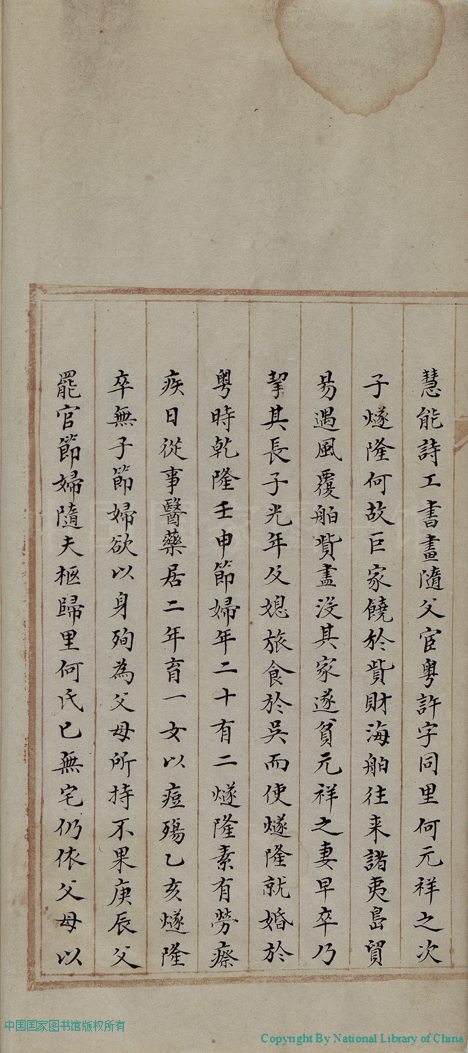 慧能詩工書畫隨父宦粵許字同里何元祥之次
子燧隆何故巨家饒於貲財海舶往來諸夷島貿
易遇風覆舶貲盡沒其家遂貧元祥之妻早卒乃
挈其長子光年父媳旅食於吳而使燧隆就婚於
粵時乾隆壬申節婦年二十有二燧隆素有勞瘵
疾日從事醫藥居二年育一女以痘殤乙亥燧隆
卒無子節婦欲以身殉為父母所持不果庚辰父
罷官節婦隨夫柩歸里何氏已無宅仍依父母以
中国国家图书馆版权所有
Copyright By National Library of China